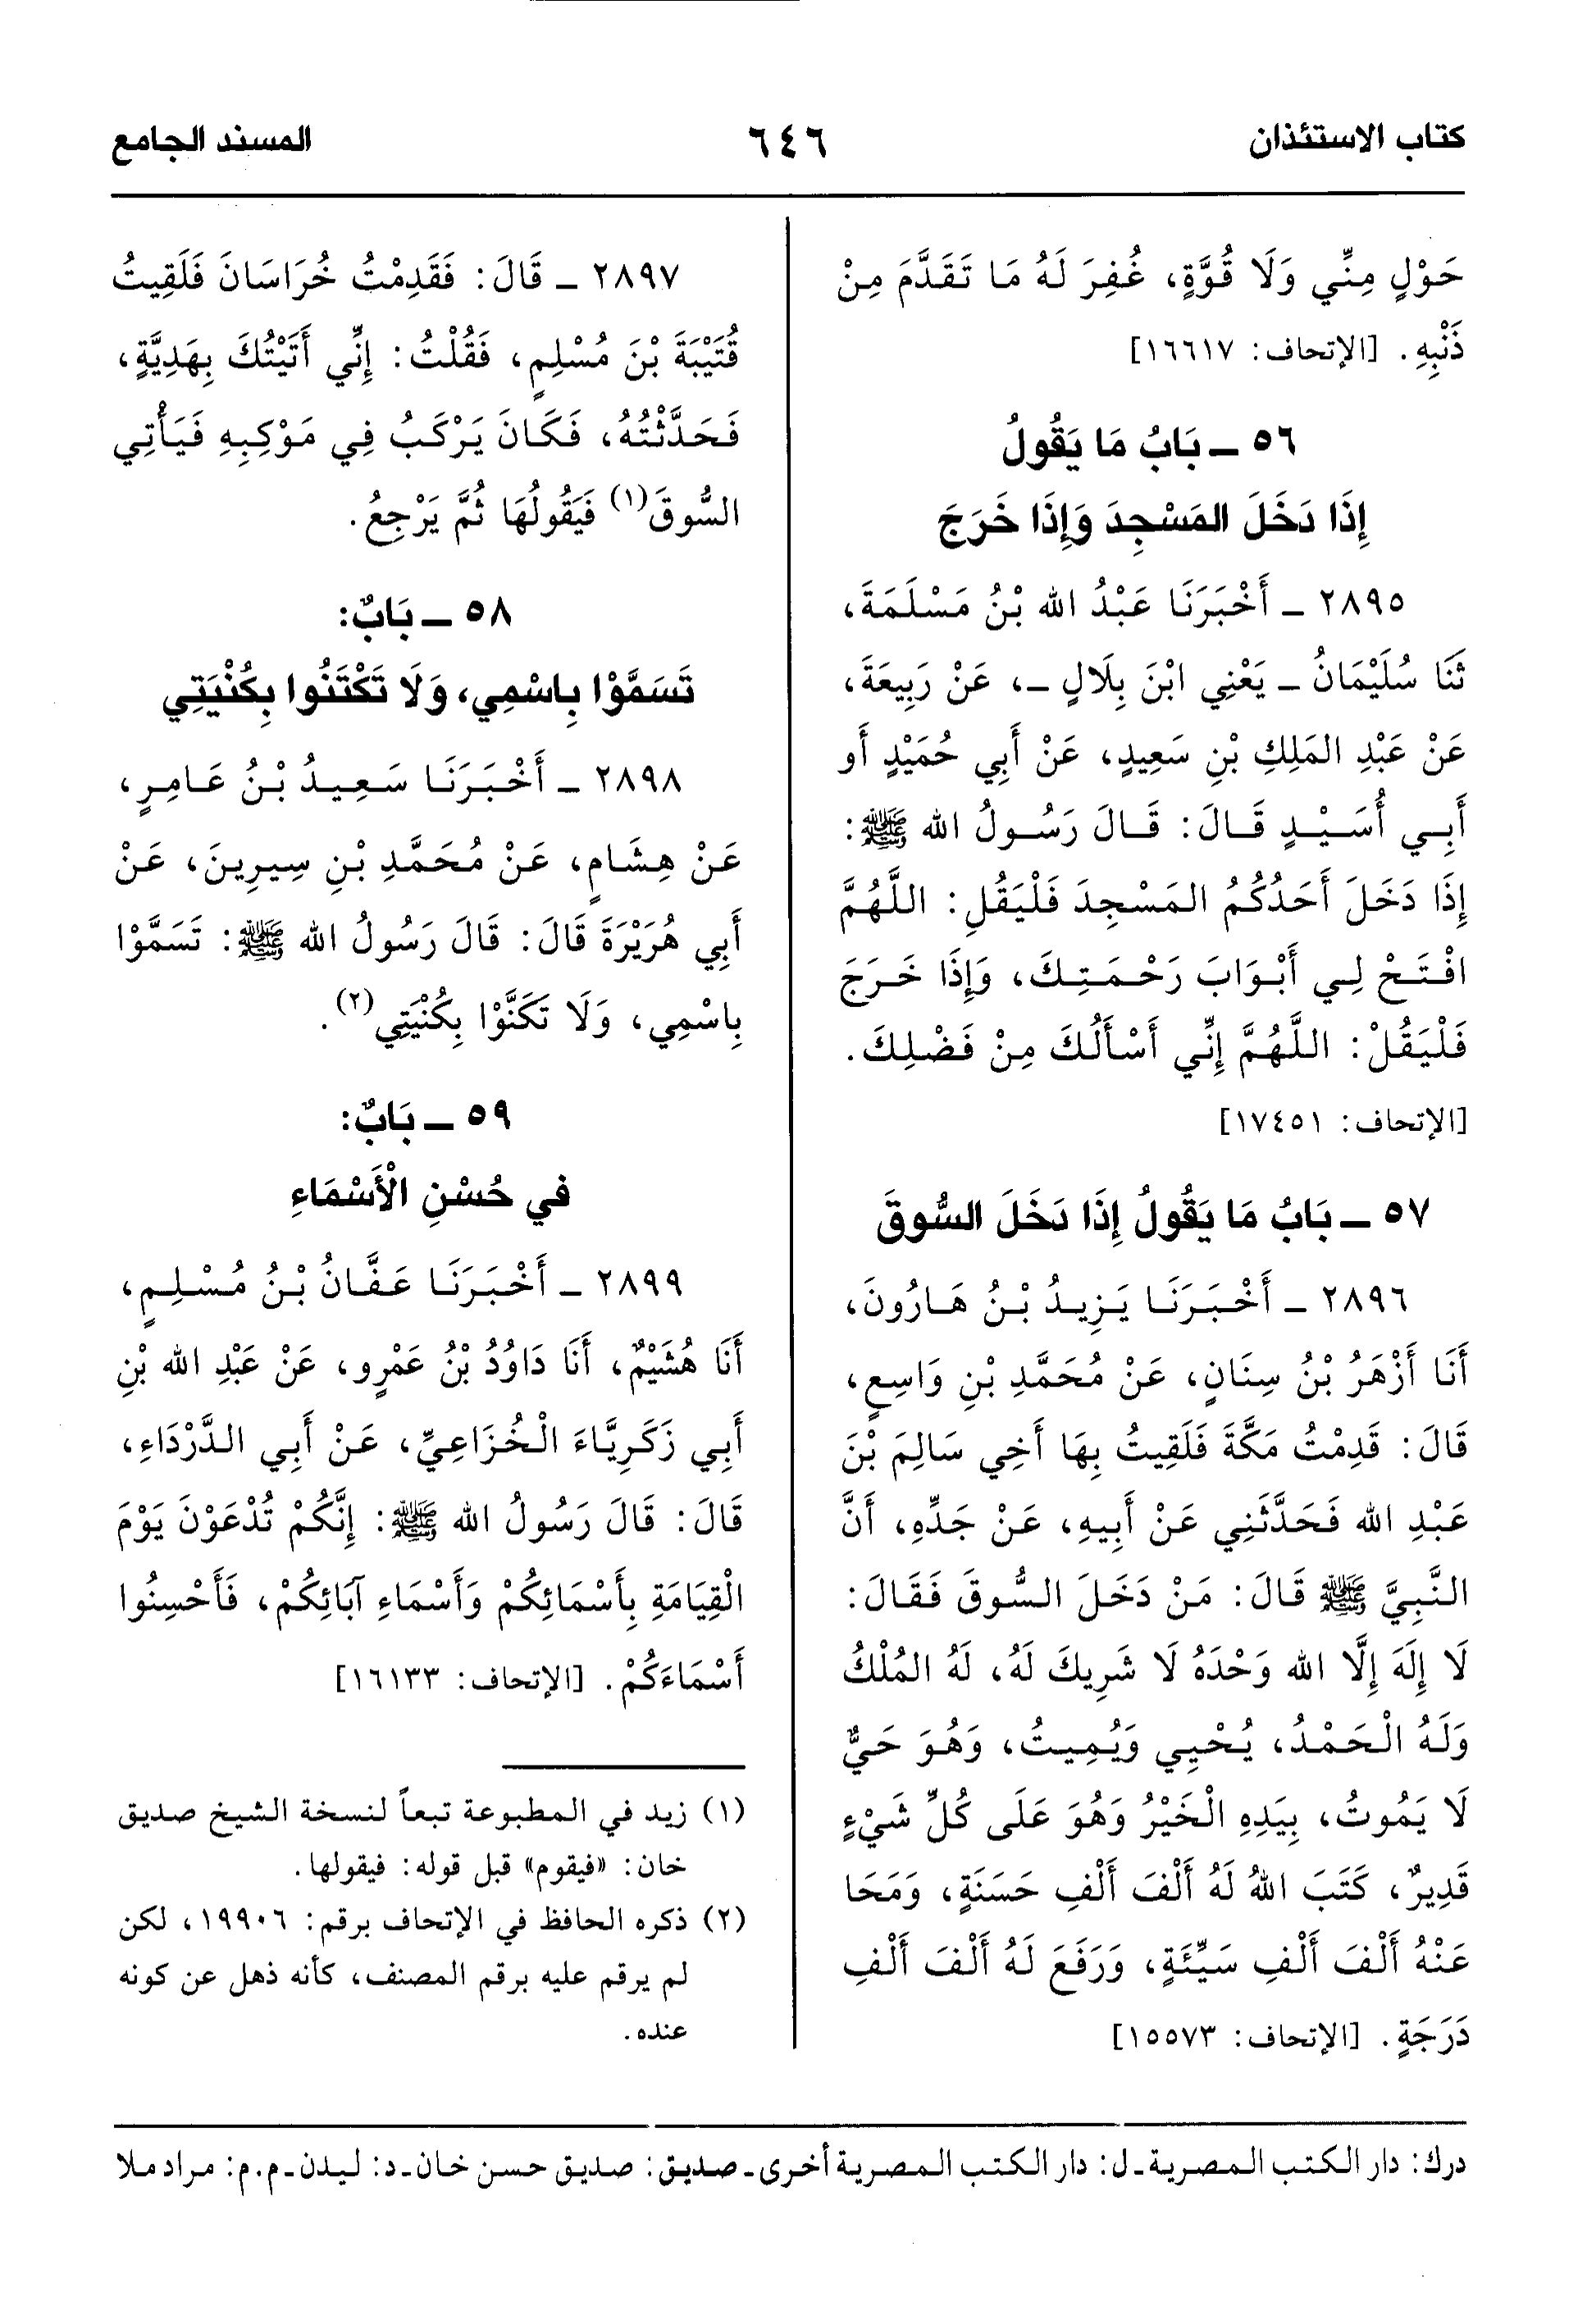 كتاب الاستئذان
٦٤٦
المسند الجامع
حَوْلٍ مِنِّي وَلَا قُوَّةٍ، غُفِرَ لَهُ مَا تَقَدَّمَ مِنْ
ذَنْبِهِ. [الإتحاف: ١٦٦١٧]
٥٦ ـ بَابُ مَا يَقُولُ
إِذَا دَخَلَ المَسْجِدَ وَإِذَا خَرَجَ
٢٨٩٥ ـ أَخْبَرَنَا عَبْدُ الله بْنُ مَسْلَمَةَ،
ثَنَا سُلَيْمَانُ ـ يَعْنِي ابْنَ بِلَالٍ ـ، عَنْ رَبِيعَةَ،
عَنْ عَبْدِ المَلِكِ بْنِ سَعِيدٍ، عَنْ أَبِي حُمَيْدٍ أَو
أَبِي أُسَيْدٍ قَالَ: قَالَ رَسُولُ الله ﷺ:
إِذَا دَخَلَ أَحَدُكُمُ المَسْجِدَ فَلْيَقُلِ: اللَّهُمَّ
افْتَحْ لِي أَبْوَابَ رَحْمَتِكَ، وَإِذَا خَرَجَ
فَلْيَقُلْ: اللَّهُمَّ إِنِّي أَسْأَلُكَ مِنْ فَضْلِكَ.
[الإتحاف: ١٧٤٥١]
٥٧ ـ بَابُ مَا يَقُولُ إِذَا دَخَلَ السُّوقَ
٢٨٩٦ ـ أَخْبَرَنَا يَزِيدُ بْنُ هَارُونَ،
أَنَا أَزْهَرُ بْنُ سِنَانٍ، عَنْ مُحَمَّدِ بْنِ وَاسِعٍ،
قَالَ: قَدِمْتُ مَكَّةَ فَلَقِيتُ بِهَا أَخِي سَالِمَ بْنَ
عَبْدِ الله فَحَدَّثَنِي عَنْ أَبِيهِ، عَنْ جَدِّهِ، أَنَّ
النَّبِيَّ ﷺ قَالَ: مَنْ دَخَلَ السُّوقَ فَقَالَ:
لَا إِلَهَ إِلَّا الله وَحْدَهُ لَا شَرِيكَ لَهُ، لَهُ المُلْكُ
وَلَهُ الْحَمْدُ، يُحْيِي وَيُمِيتُ، وَهُوَ حَيٌّ
لَا يَمُوتُ، بِيَدِهِ الْخَيْرُ وَهُوَ عَلَى كُلِّ شَيْءٍ
قَدِيرٌ، كَتَبَ اللهُ لَهُ أَلْفَ أَلْفِ حَسَنَةٍ، وَمَحَا
عَنْهُ أَلْفَ أَلْفِ سَيِّئَةٍ، وَرَفَعَ لَهُ أَلْفَ أَلْفِ
دَرَجَةٍ. [الإتحاف: ١٥٥٧٣]
٢٨٩٧ ـ قَالَ: فَقَدِمْتُ خُرَاسَانَ فَلَقِيتُ
قُتَيْبَةَ بْنَ مُسْلِمٍ، فَقُلْتُ: إِنِّي أَتَيْتُكَ بِهَدِيَّةٍ،
فَحَدَّثْتُهُ، فَكَانَ يَرْكَبُ فِي مَوْكِبِهِ فَيَأْتِي
السُّوقَ(١) فَيَقُولُهَا ثُمَّ يَرْجِعُ.
٥٨ ـ بَابٌ:
تَسَمَّوْا بِاسْمِي، وَلَا تَكْتَنُوا بِكُنْيَتِي
٢٨٩٨ ـ أَخْبَرَنَا سَعِيدُ بْنُ عَامِرٍ،
عَنْ هِشَامٍ، عَنْ مُحَمَّدِ بْنِ سِيرِينَ، عَنْ
أَبِي هُرَيْرَةَ قَالَ: قَالَ رَسُولُ الله ﷺ: تَسَمَّوْا
بِاسْمِي، وَلَا تَكَنَّوْا بِكُنْيَتِي(٢).
٥٩ ـ بَابٌ:
في حُسْنِ الْأَسْمَاءِ
٢٨٩٩ ـ أَخْبَرَنَا عَفَّانُ بْنُ مُسْلِمٍ،
أَنَا هُشَيْمٌ، أَنَا دَاوُدُ بْنُ عَمْرٍو، عَنْ عَبْدِ الله بْنِ
أَبِي زَكَرِيَّاءَ الْخُزَاعِيِّ، عَنْ أَبِي الدَّرْدَاءِ،
قَالَ: قَالَ رَسُولُ الله ﷺ: إِنَّكُمْ تُدْعَوْنَ يَوْمَ
الْقِيَامَةِ بِأَسْمَائِكُمْ وَأَسْمَاءِ آبَائِكُمْ، فَأَحْسِنُوا
أَسْمَاءَكُمْ. [الإتحاف: ١٦١٣٣]
(١) زيد في المطبوعة تبعاً لنسخة الشيخ صديق
خان: «فيقوم» قبل قوله: فيقولها.
(٢) ذكره الحافظ في الإتحاف برقم: ١٩٩٠٦، لكن
لم يرقم عليه برقم المصنف، كأنه ذهل عن كونه
عنده.
درك: دار الكتب المصرية ـ ل: دار الكتب المصرية أخرى ـ صديق: صديق حسن خان ـ د: ليدن ـ م.م: مراد ملا